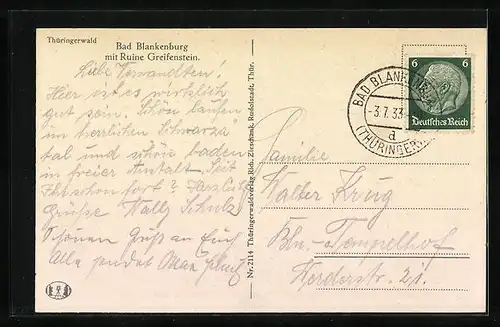 Thüringerwald
Bad Blankenburg
mit Ruine Greifenstein.
Liebe Verwandten!
Hier ist es wirklich
gut sein. Schön laufen
im herrlichen Schwarza
tal und schön baden
in freier Anstalt. Seit
Ihr schon fort? Herzliche
Grüße Wally Schulz
Schönen Gruß an Euch
Alle sendet Oskar Schulz
Nr. 2114 Thüringerwaldverlag Rich. Zieschank, Rudolstadt, Thür.
6 6
Deutsches Reich
BAD BLANKENBURG
-3.7.33
d
(THÜRINGER
Familie
Walter Krug
Bln.-Tempelhof
Werderstr. 21.